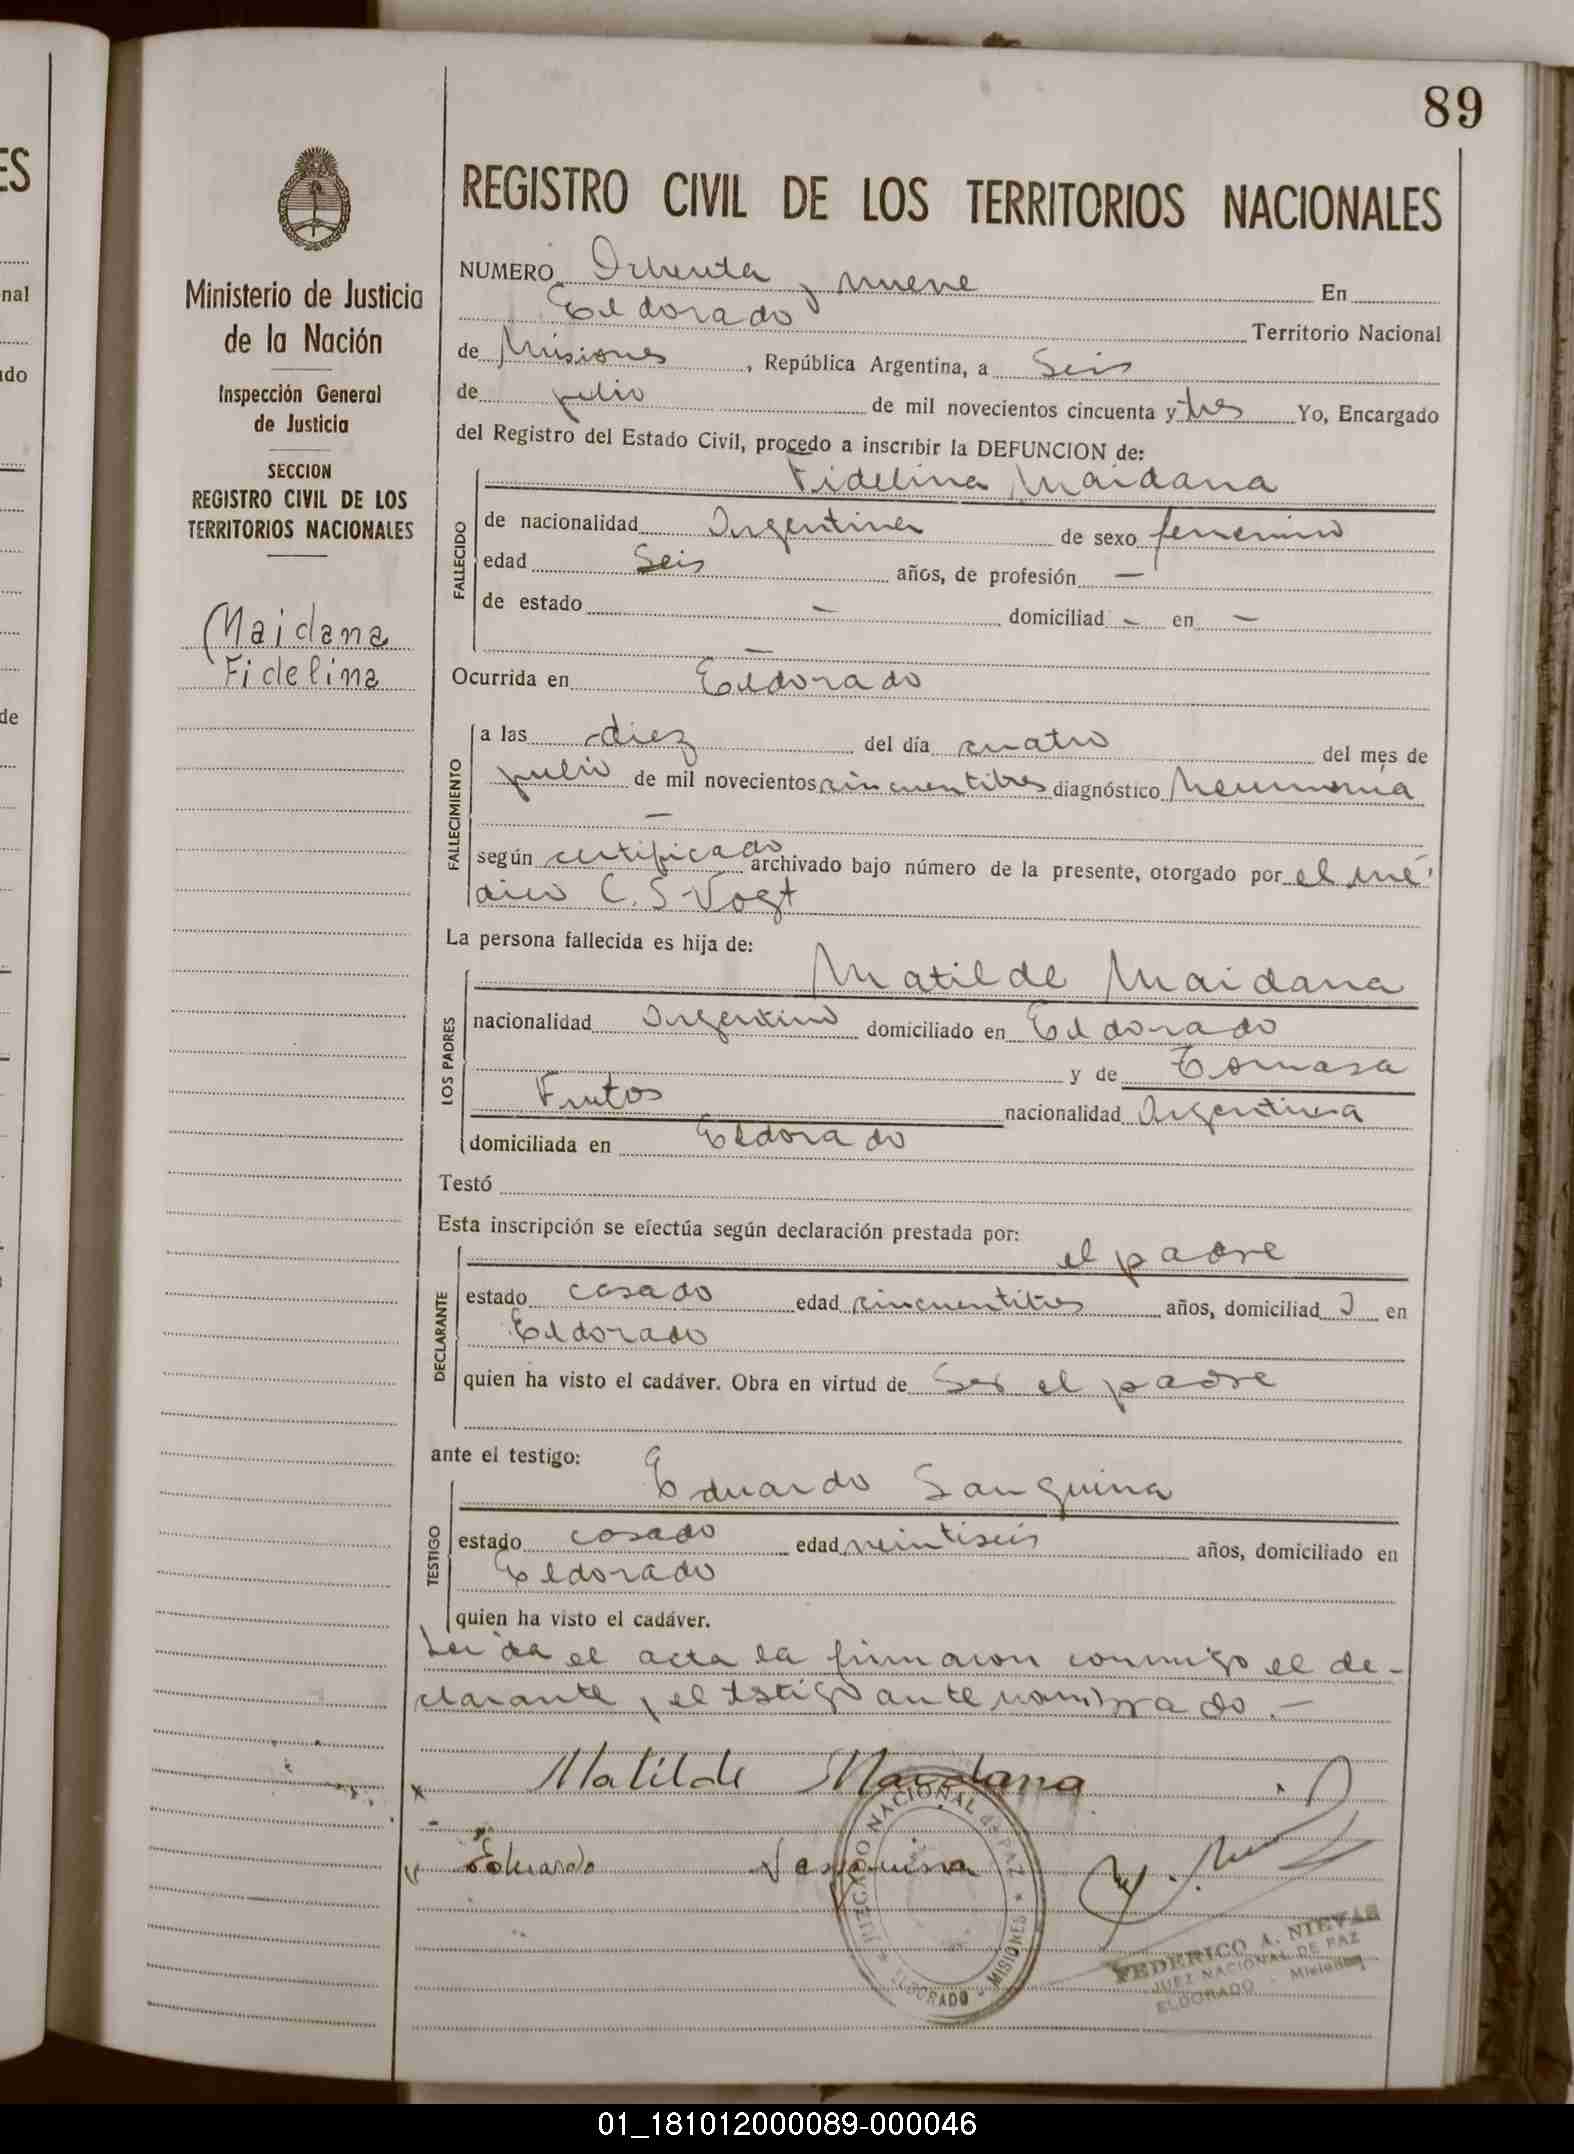 89
REGISTRO CIVIL DE LOS TERRITORIOS NACIONALES
Ministerio de Justicia
de la Nación
Inspección General
de Justicia
SECCION
REGISTRO CIVIL DE LOS
TERRITORIOS NACIONALES
Maidana
Fidelina
NUMERO Ochenta y nueve En
Eldorado Territorio Nacional
de Misiones, República Argentina, a Seis
de julio de mil novecientos cincuenta y tres Yo, Encargado
del Registro del Estado Civil, procedo a inscribir la DEFUNCION de:
Fidelina Maidana
FALLECIDO
de nacionalidad Argentina de sexo femenino
edad Seis años, de profesión —
de estado — domiciliad - en —
—
Ocurrida en Eldorado
FALLECIMIENTO
a las diez del día cuatro del mes de
julio de mil novecientos cincuentitres diagnóstico Neumonia
—
según certificado archivado bajo número de la presente, otorgado por el mé
dico C. S. Vogt
La persona fallecida es hija de:
Matilde Maidana
LOS PADRES
nacionalidad Argentino domiciliado en Eldorado
y de Tomasa
Frutos nacionalidad Argentina
domiciliada en Eldorado
Testó
Esta inscripción se efectúa según declaración prestada por:
el padre
DECLARANTE
estado casado edad cincuentitres años, domiciliad o en
Eldorado
quien ha visto el cadáver. Obra en virtud de Ser el padre
ante el testigo:
Eduardo Sanguina
TESTIGO
estado casado edad veintiseis años, domiciliado en
Eldorado
quien ha visto el cadáver.
Leida el acta la firmaron conmigo el de-
clarante y el testigo ante nombrado. —
Matilde Maidana
Eduardo
JUZGADO NACIONAL de PAZ
ELDORADO - MISIONES
FEDERICO A. NIEVAS
JUEZ NACIONAL DE PAZ
ELDORADO - Misiones
01_181012000089-000046